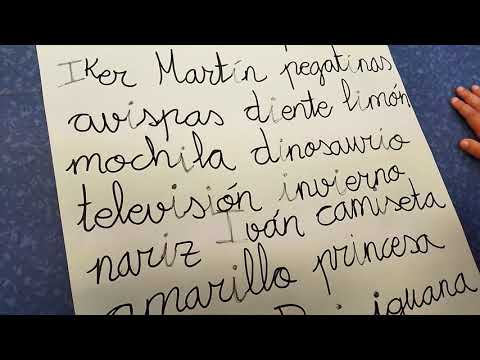 Iker Martín pegatinas
avispas diente limón
mochila dinosaurio
televisión invierno
nariz Iván camiseta
amarillo princesa
iguana